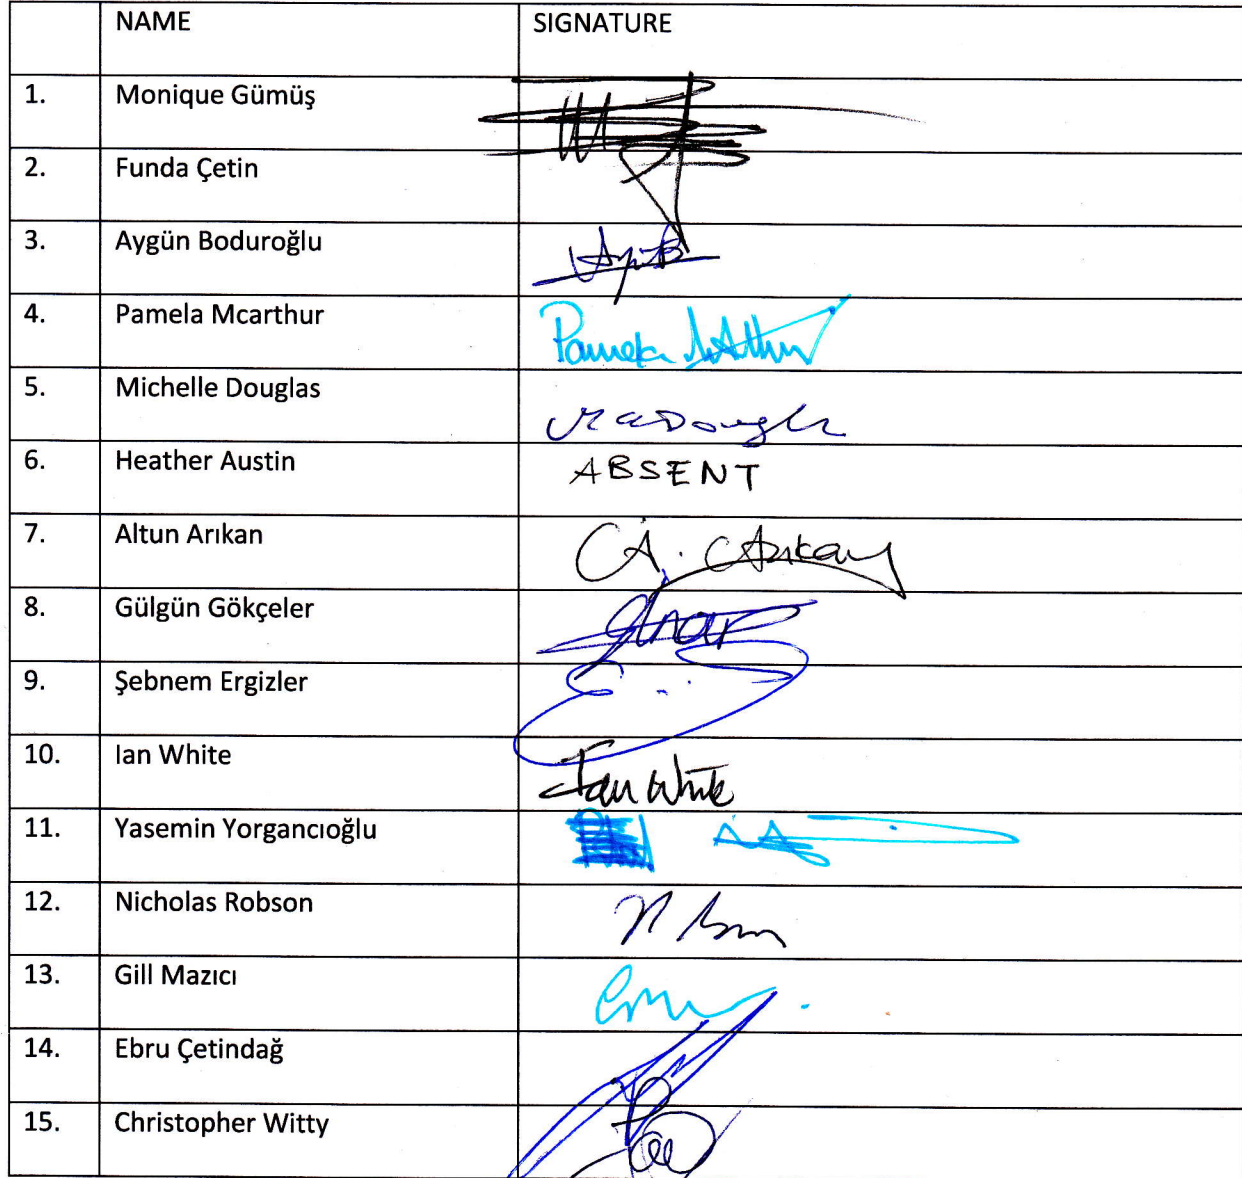 NAME SIGNATURE
1. Monique Gümüş
2. Funda Çetin
3. Aygün Boduroğlu
4. Pamela Mcarthur Pamela McArthur
5. Michelle Douglas
6. Heather Austin ABSENT
7. Altun Arıkan A. Arıkan
8. Gülgün Gökçeler
9. Şebnem Ergizler
10. Ian White Ian White
11. Yasemin Yorgancıoğlu
12. Nicholas Robson
13. Gill Mazıcı
14. Ebru Çetindağ
15. Christopher Witty